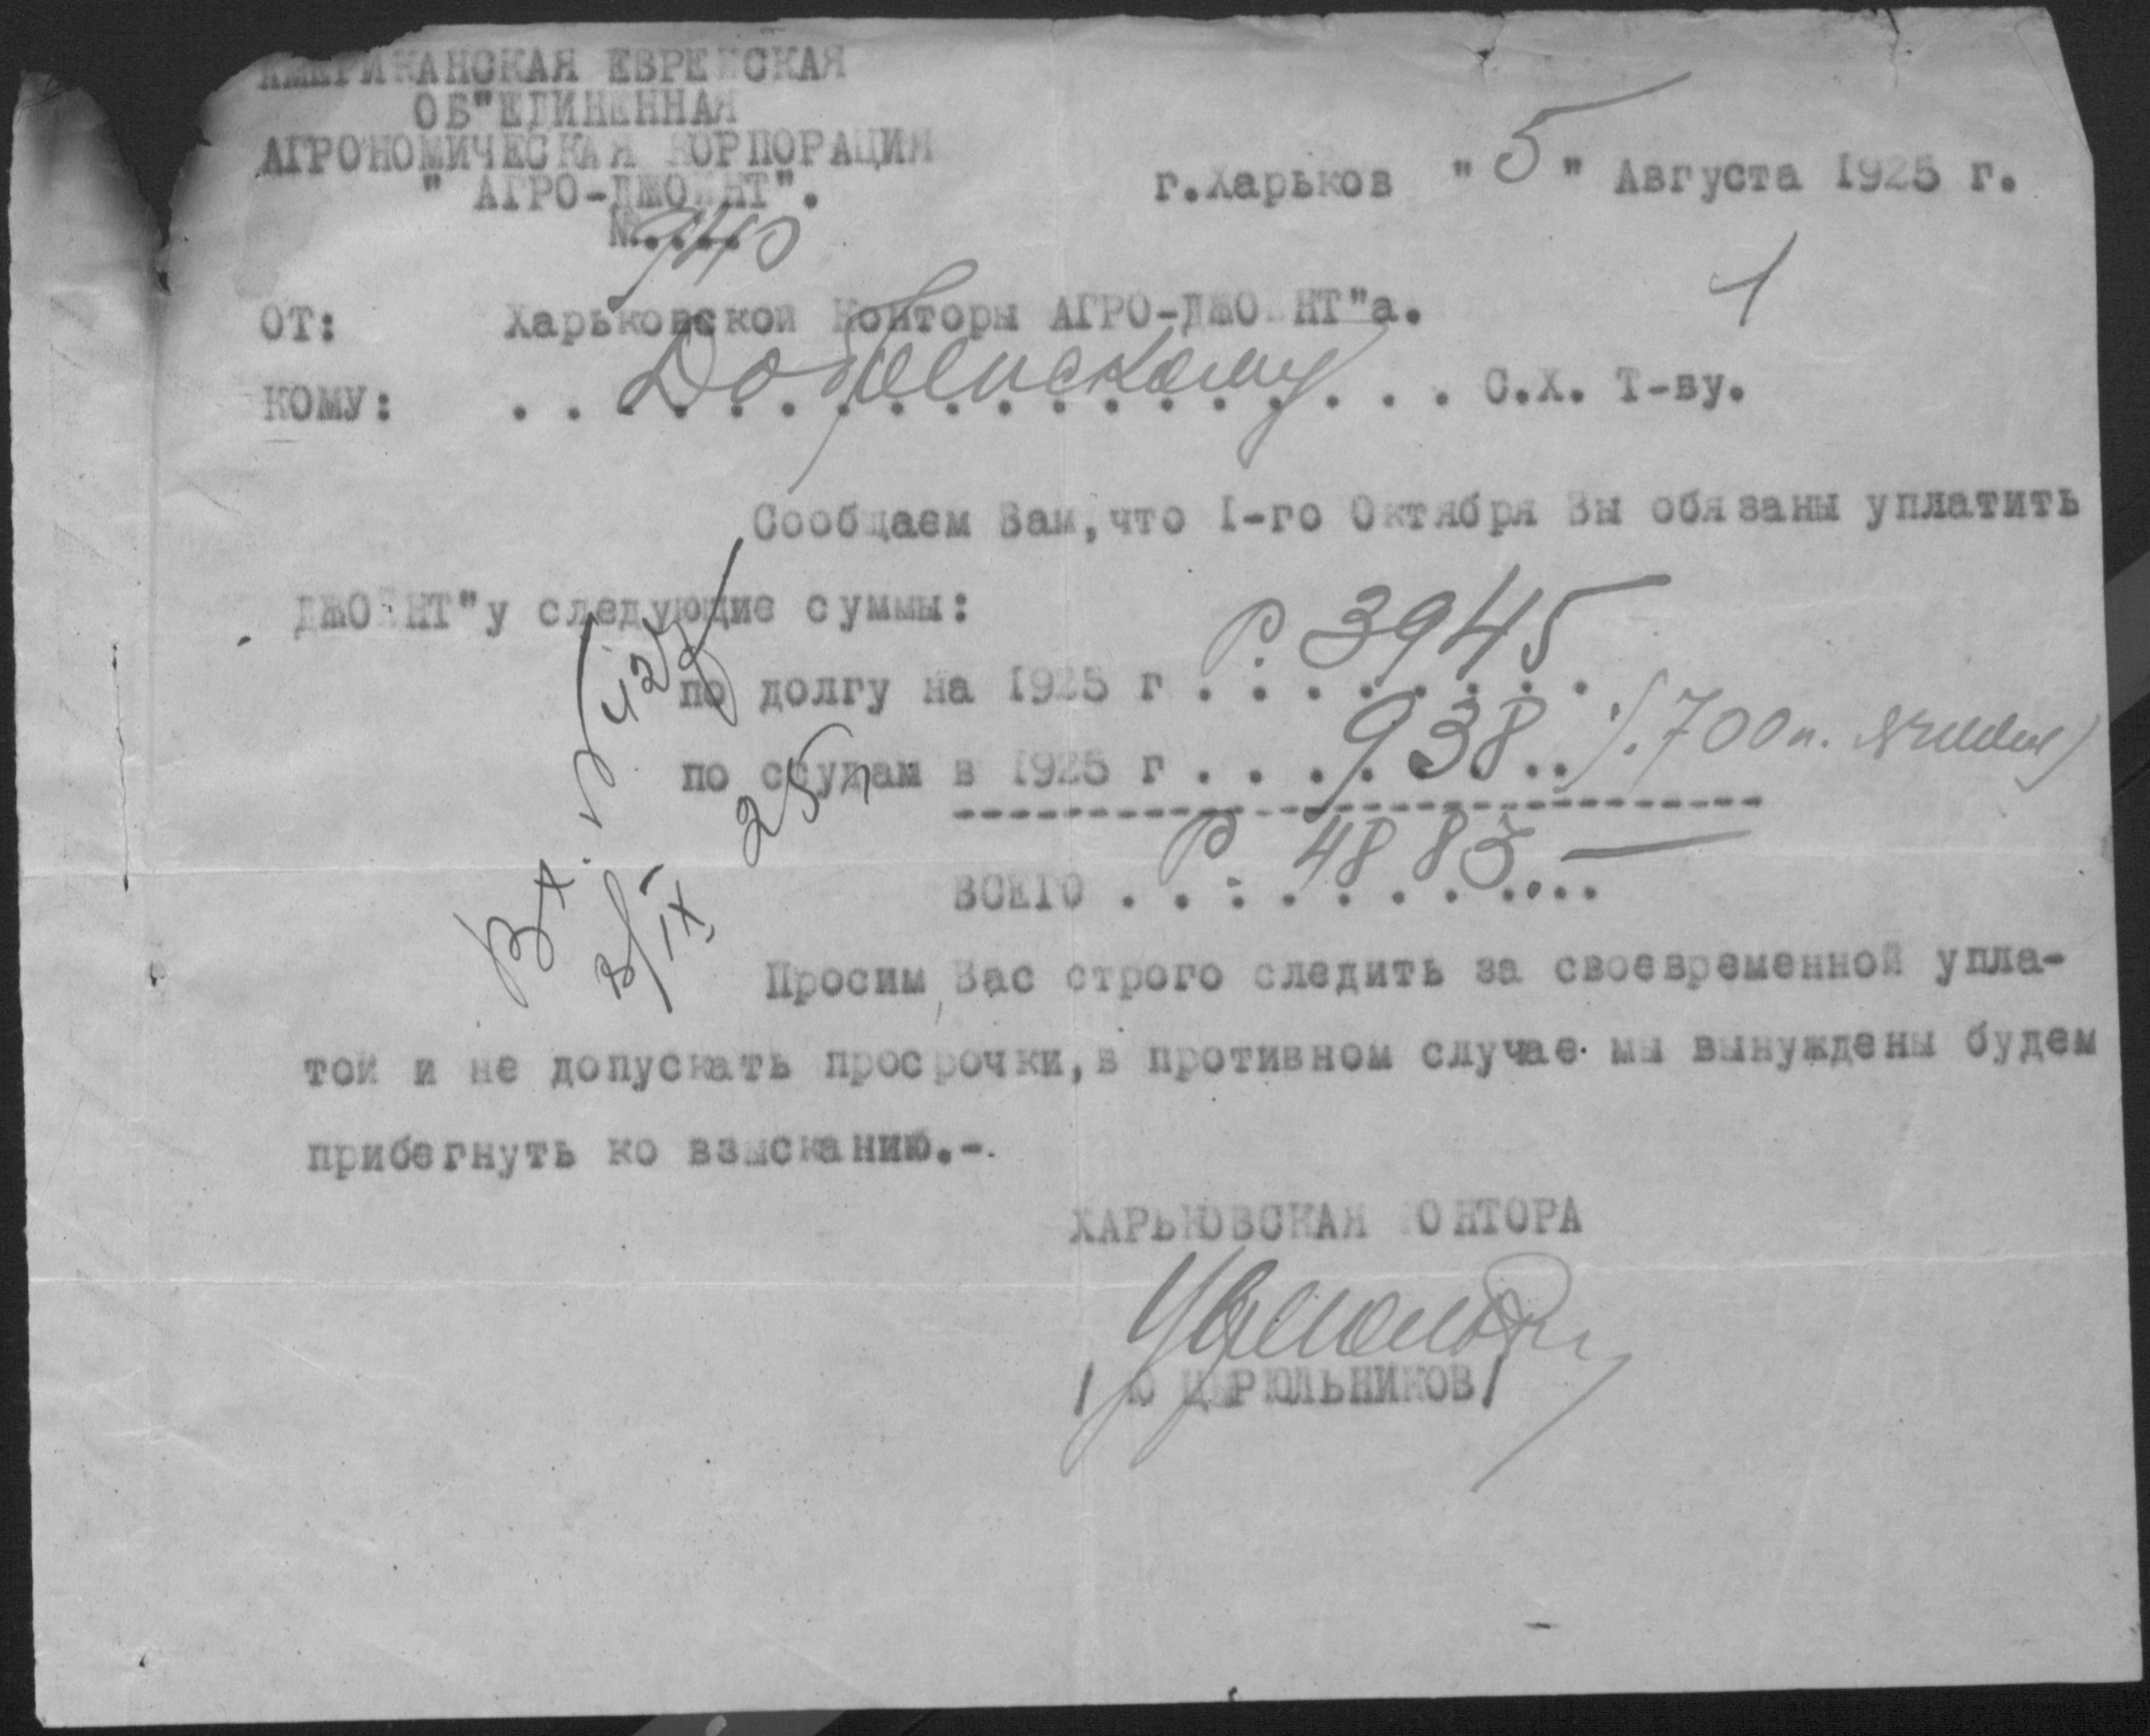 АМЕРИКАНСКАЯ ЕВРЕЙСКАЯ
ОБ"ЕДИНЕННАЯ
АГРОНОМИЧЕСКАЯ КОРПОРАЦИЯ
" АГРО-ДЖОЙНТ".
№.... 940
г.Харьков " 5 " Августа 1925 г.
1
ОТ: Харьковской Конторы АГРО-ДЖОЙНТ"а.
КОМУ: . . . . . . . . . . . . . . . . . С.Х. Т-ву.
Сообщаем Вам,что I-го Октября Вы обязаны уплатить
ДЖОЙНТ"у следующие суммы:
по долгу на 1925 г . . . . . . . . Р. 3945
по ссудам в 1925 г . . . . 938 . . /. 700 п.
ВСЕГО . . . . . . . . .... Р. 4883.—
Вх. №
IX 25
Просим Вас строго следить за своевременной упла-
той и не допускать просрочки,в противном случае мы вынуждены будем
прибегнуть ко взысканию.-.
ХАРЬКОВСКАЯ КОНТОРА
/ Ю ЦЫРЮЛЬНИКОВ/